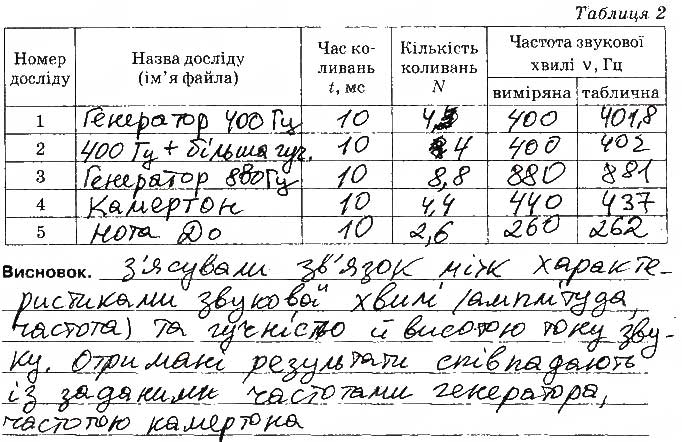 Таблиця 2
Номер досліду | Назва досліду (ім'я файла) | Час коливань t, мс | Кількість коливань N | Частота звукової хвилі ν, Гц
виміряна | таблична
1 | Генератор 400 Гц | 10 | 400 | 401,8
2 | 400 Гц + більша гуч. | 10 | 4 | 400 | 402
3 | Генератор 880 Гц | 10 | 8,8 | 880 | 881
4 | Камертон | 10 | 4,4 | 440 | 437
5 | Нота До | 10 | 2,6 | 260 | 262
Висновок. З'ясували зв'язок між характе-
ристиками звукової хвилі (амплітуда,
частота) та гучністю й висотою тону зву-
ку. Отримані результати співпадають
із заданими частотами генератора,
частотою камертона